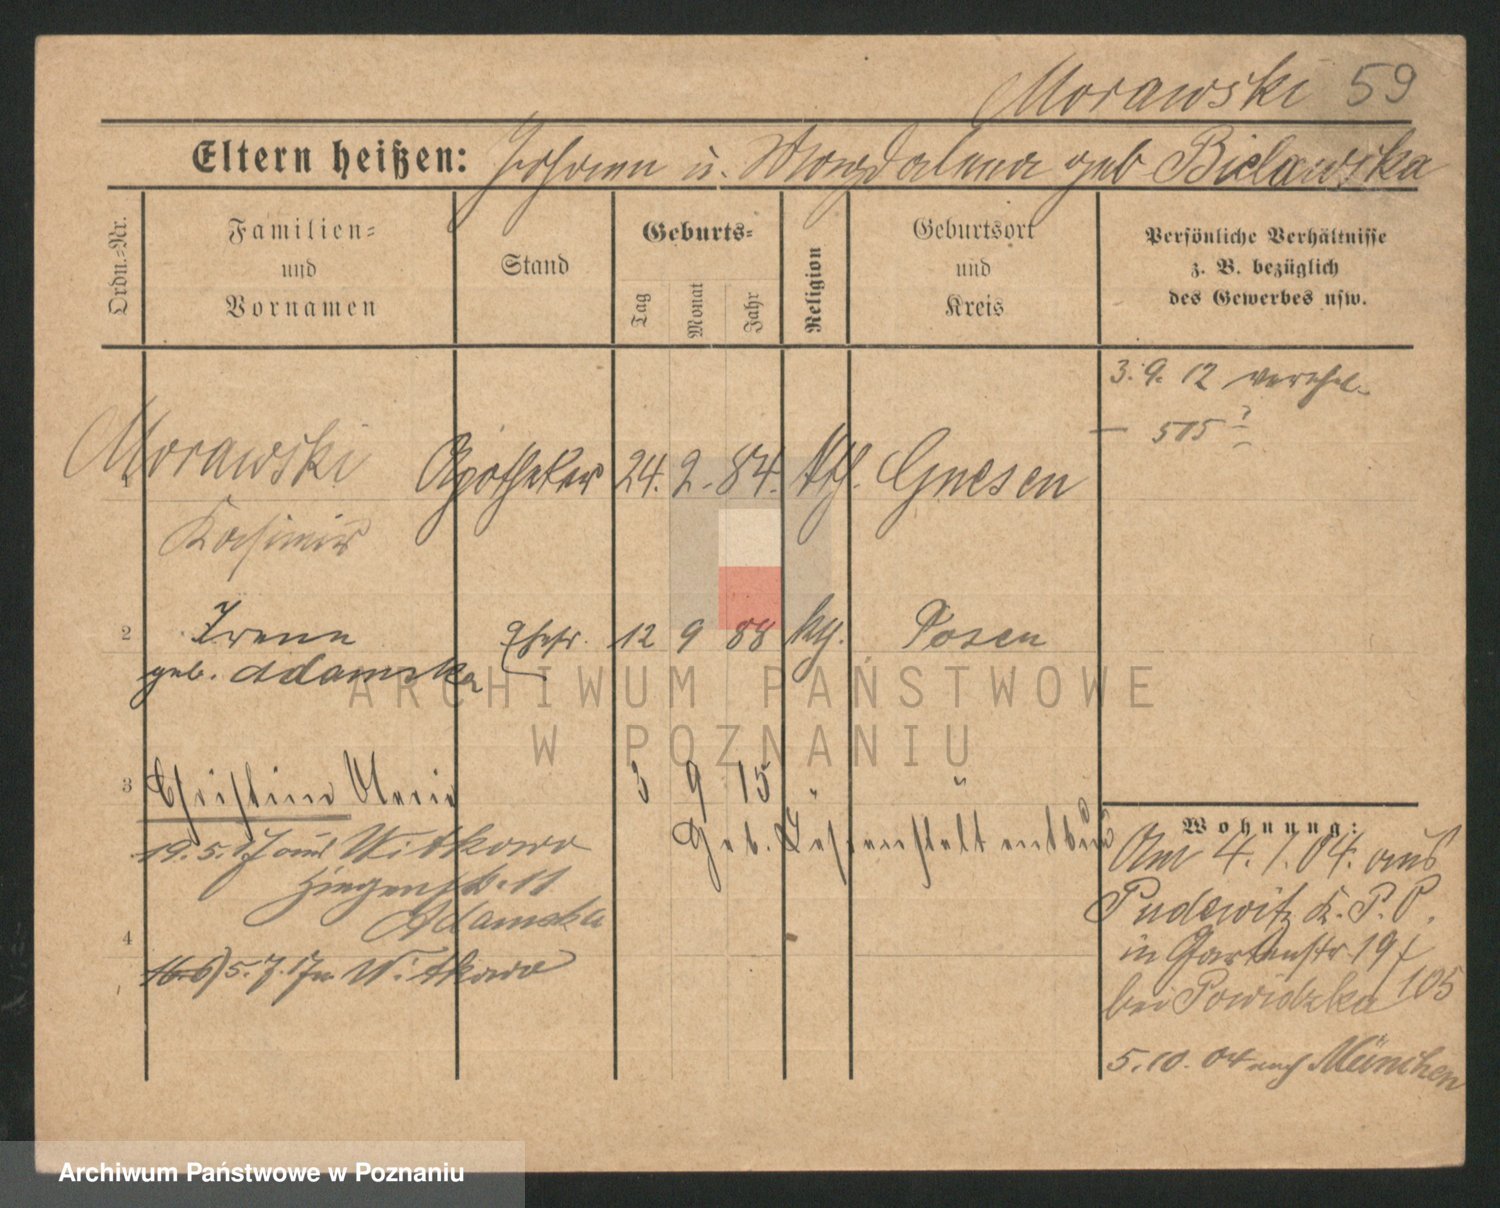 Morawski 59
Eltern heißen: Johann u. Magdalena geb Bielawska
Ordn.=Nr.
Familien=
und
Vornamen
Stand
Geburts=
Tag
Monat
Jahr
Religion
Geburtsort
und
Kreis
Persönliche Verhältnisse
z. B. bezüglich
des Gewerbes usw.
3. 9. 12 verehel.
— 515 ?
1 Morawski Apotheker 24. 2. 84. Kth. Gnesen
Kasimir
2 Irena Ehefr. 12 9 88 kg. Posen
geb. Adamska
3 Christina Maria 3 9 15 " "
Geb.
19. 5. 17 aus Witkowo
11
Adamska
4
16.6) 5. 7. 17 n. Witkowo
Wohnung:
Am 4. 1. 04. aus
Pudewitz K. P. O.
in Gartenstr 19 I
bei Powidzka 105
5. 10. 04 nach München
ARCHIWUM PAŃSTWOWE
W POZNANIU
Archiwum Państwowe w Poznaniu